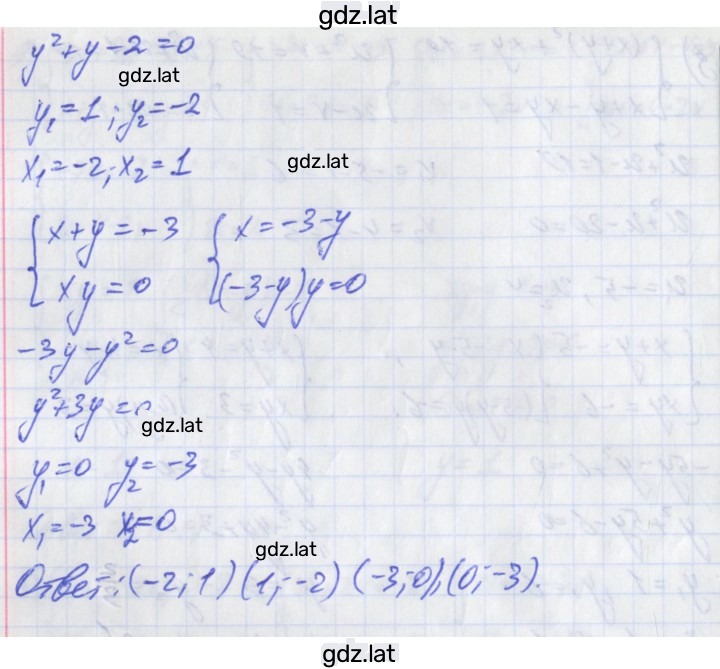 gdz.lat
y²+y-2=0
gdz.lat
y₁=1; y₂=-2
x₁=-2; x₂=1
gdz.lat
{x+y=-3 {x=-3-y
{xy=0 {(-3-y)y=0
-3y-y²=0
y²+3y=0
gdz.lat
y₁=0 y₂=-3
x₁=-3 x₂=0
gdz.lat
Ответ: (-2; 1) (1; -2) (-3; 0); (0; -3).
gdz.lat